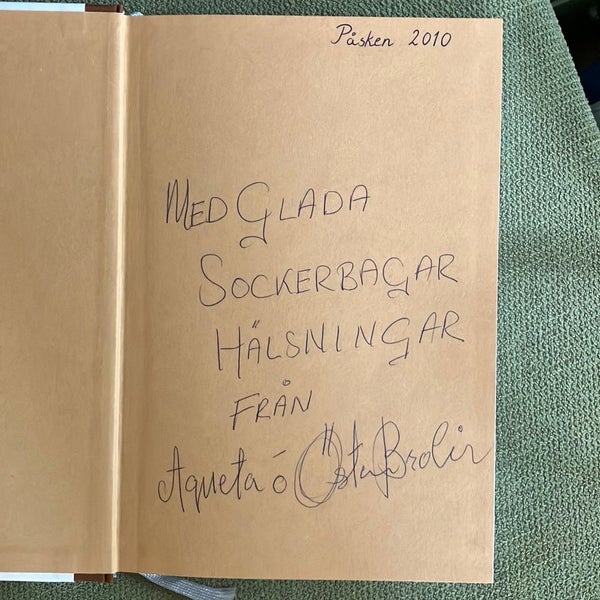 Påsken 2010
MED GLADA
SOCKERBAGAR
HÄLSNINGAR
FRÅN
Agneta ó Östen Brolin